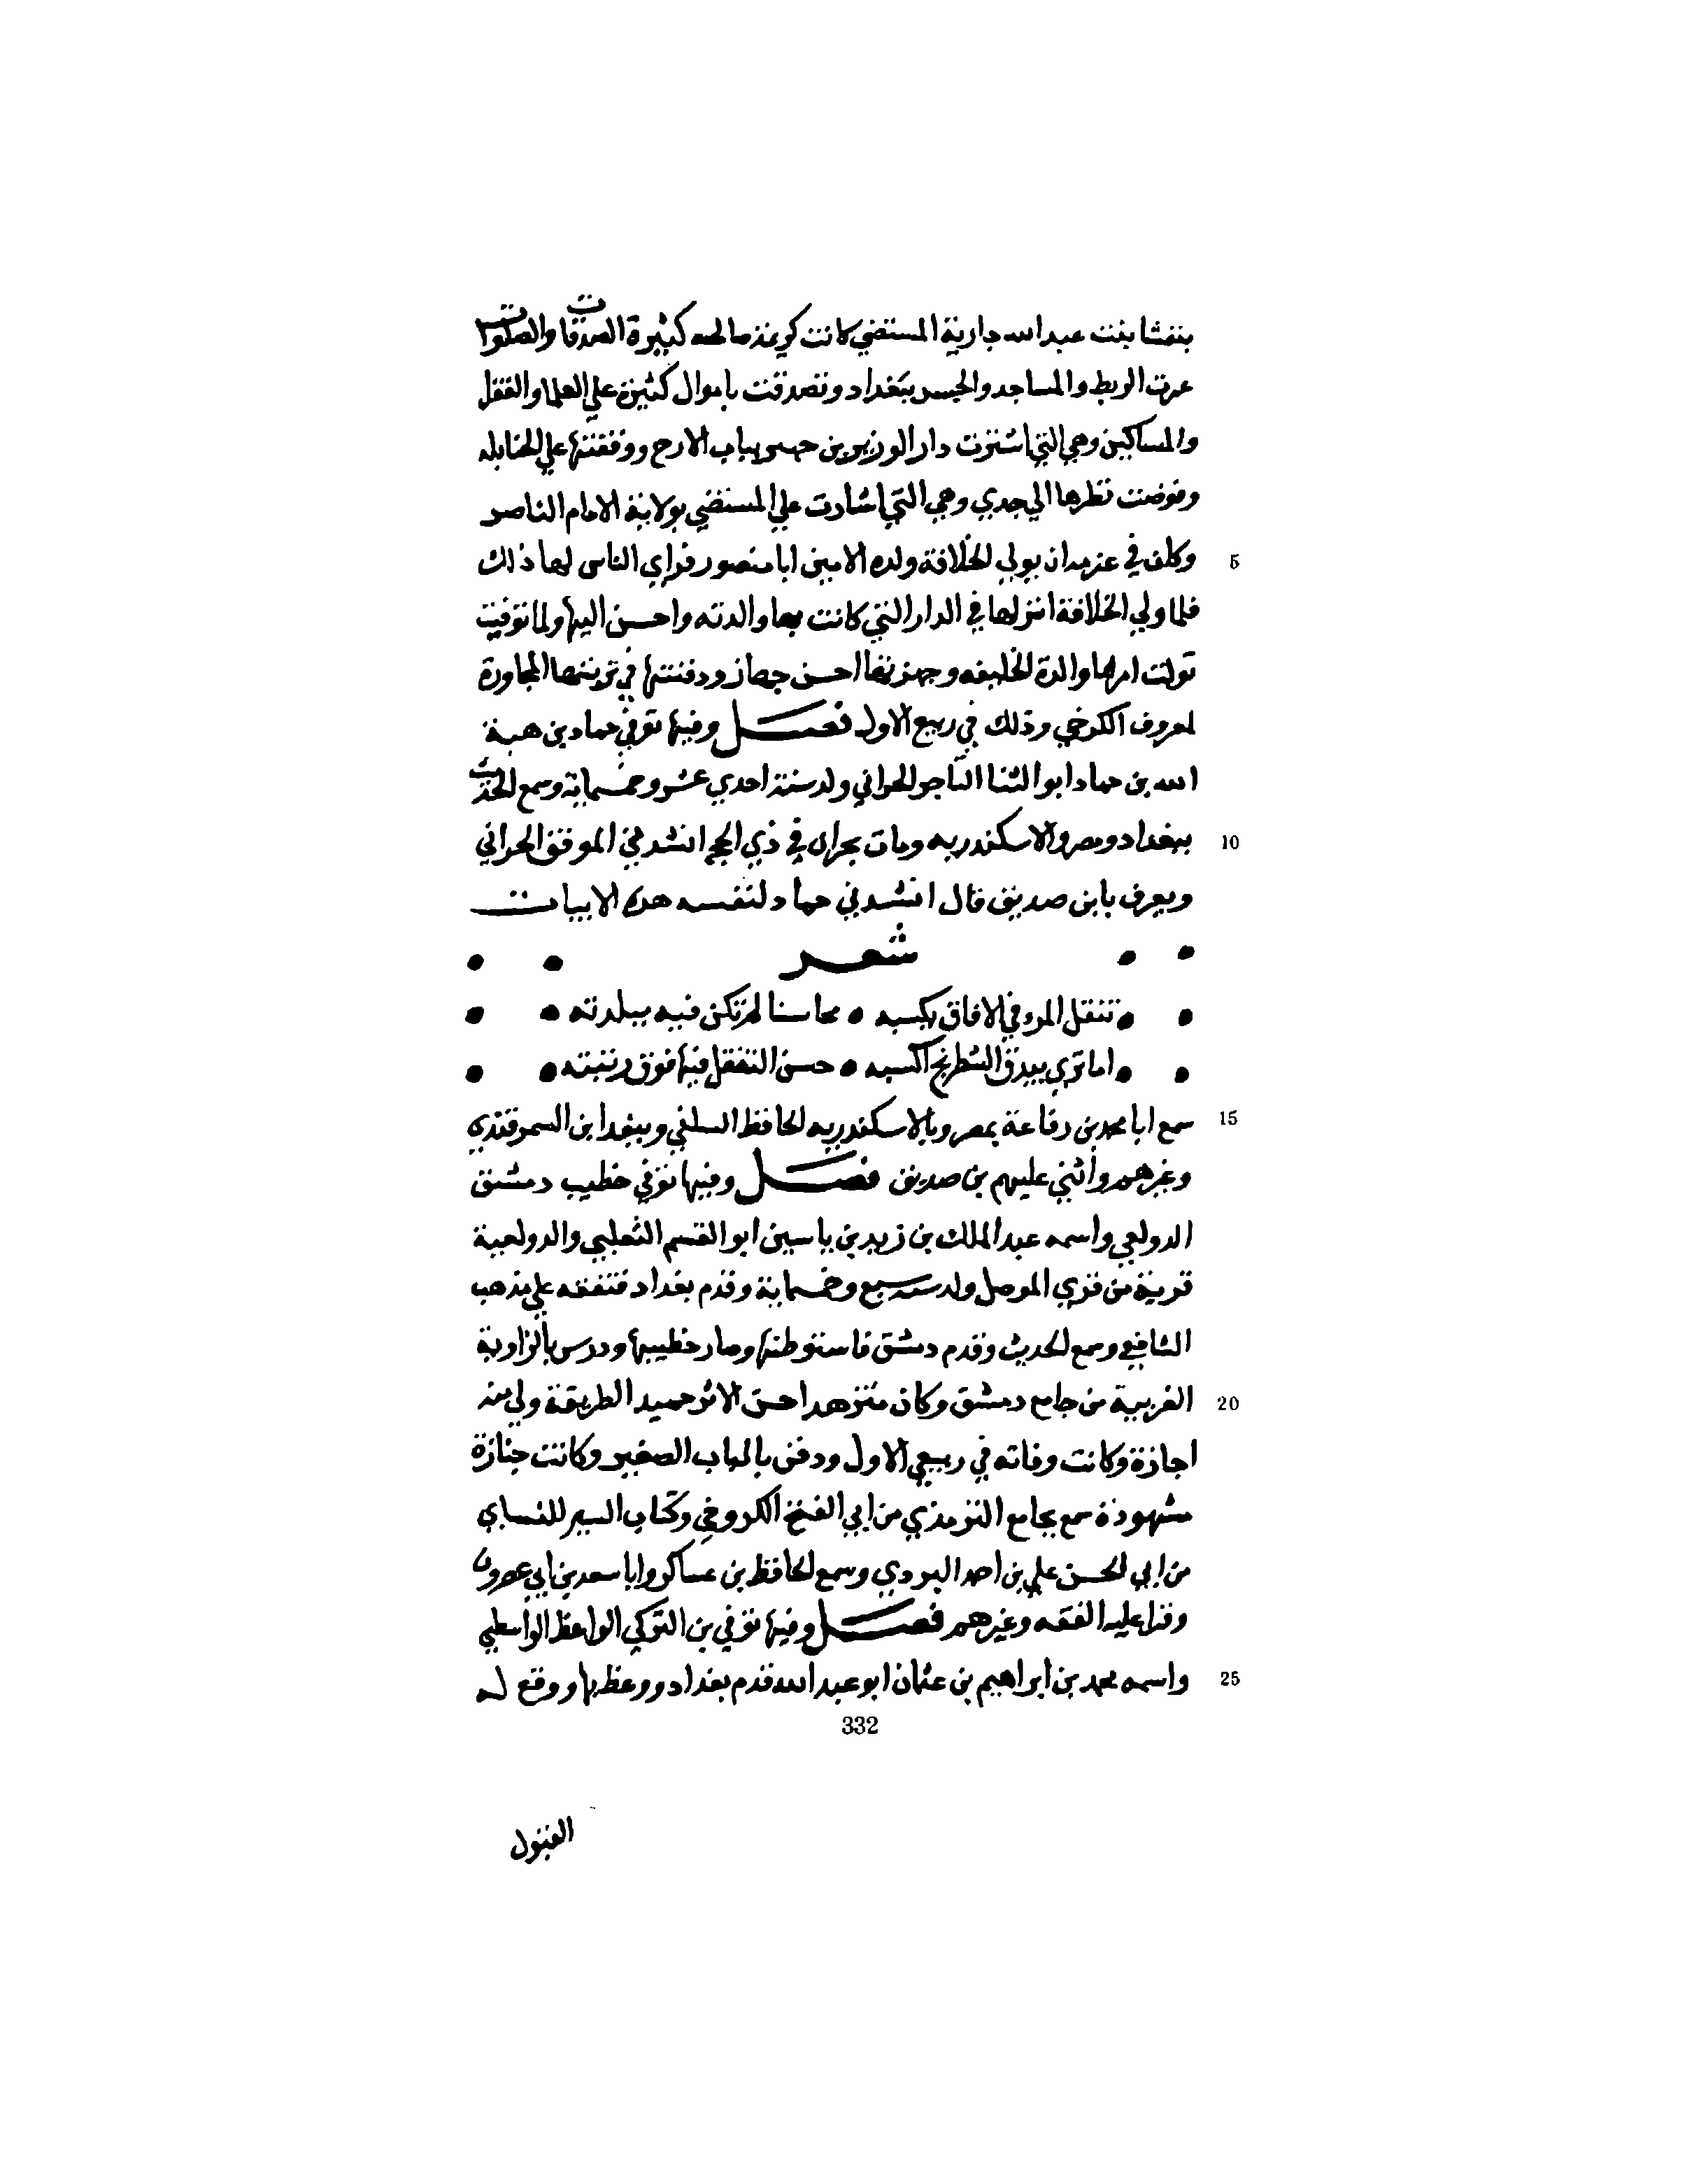 بنفشا بنت عبد الله جارية المستضي كانت كريمة صالحه كثيرة الصدقات والصلوات
عمرت الربط والمساجد والجسر ببغداد وتصدقت باموال كثيرة علي العلما والفقرا
والمساكين وهي التي اشترت دار الوزير بن جهير بباب الازج ووقفتها علي الحنابله
وفوضت نظرها الي جدي وهي التي اشارت علي المستضي بولاية الامام الناصر
وكان في عزمه ان يولي الخلافة ولده الامير ابا منصور فراي الناس لها ذلك 5
فلما ولي الخلافة انزلها في الدار التي كانت بها والدته واحسن اليها ولما توفيت
تولت امرها والدة الخليفه وجهزتها احسن جهاز ودفنتها في تربتها المجاورة
لمعروف الكرخي وذلك في ربيع الاول فصل وفيها توفي حماد بن هبة
الله بن حماد ابو الثنا التاجر الحراني ولد سنة احدي عشر وخمسماية وسمع الحديث
ببغداد ومصر والاسكندريه ومات بحران في ذي الحجه انشدني الموفق الحراني 10
ويعرف بابن صديق قال انشدني حماد لنفسه هذه الابيات
شعر
تنقل المرء في الافاق يكسبه • محاسنا لم تكن فيه ببلدته
اما تري بيدق الشطرنج اكسبه • حسن التنقل فيها فوق رتبته
سمع ابا محمد بن رفاعة بمصر وبالاسكندريه الحافظ السلفي وببغدا بن السمرقندي 15
وغيرهم وأثني عليهم بن صديق فصل وفيها توفي خطيب دمشق
الدولعي واسمه عبد الملك بن زيد بن ياسين ابو القسم الثعلبي والدولعية
قرية من قري الموصل ولد سنه سبع وخمسماية وقدم بغداد فتفقه علي مذهب
الشافعي وسمع الحديث وقدم دمشق فاستوطنها وصار خطيبها ودرس بالزاوية
الغربية من جامع دمشق وكان متزهدا حسن الاثر حميد الطريقة ولي منه 20
اجازة وكانت وفاته في ربيع الاول ودفن بالباب الصغير وكانت جنازة
مشهودة سمع بجامع الترمذي من ابي الفتح الكروخي وكتاب السير للنساي
من ابي الحسن علي بن احمد اليزدي وسمع الحافظ بن عساكر وابا سعد بن ابي عصرون
وقرا عليه الفقه وغيرهم فصل وفيها توفي بن التركي الواعظ الواسطي
واسمه محمد بن ابراهيم بن عثمان ابو عبد الله قدم بغداد ووعظ بها ووقع له 25
332
القبول